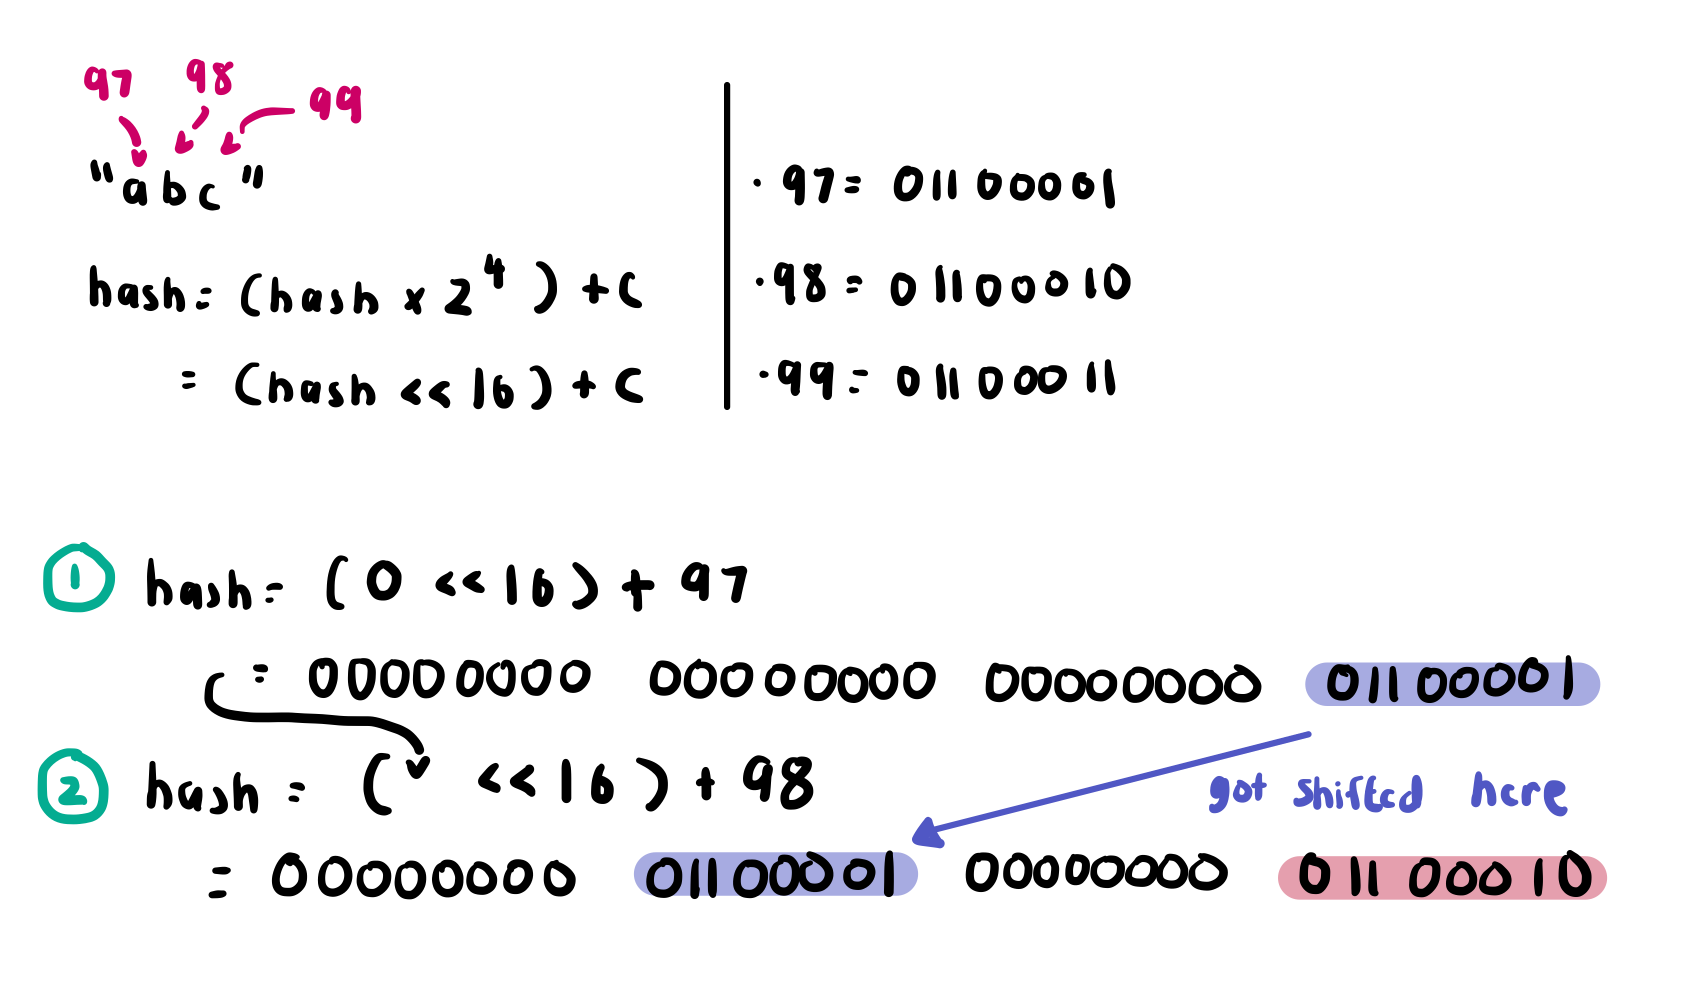 97 98 99
"abc"
hash = (hash x 2⁴) + c
= (hash << 16) + c
· 97 = 01100001
· 98 = 01100010
· 99 = 01100011
1 hash = (0 << 16) + 97
= 00000000 00000000 00000000 01100001
2 hash = ( << 16) + 98
got shifted here
= 00000000 01100001 00000000 01100010